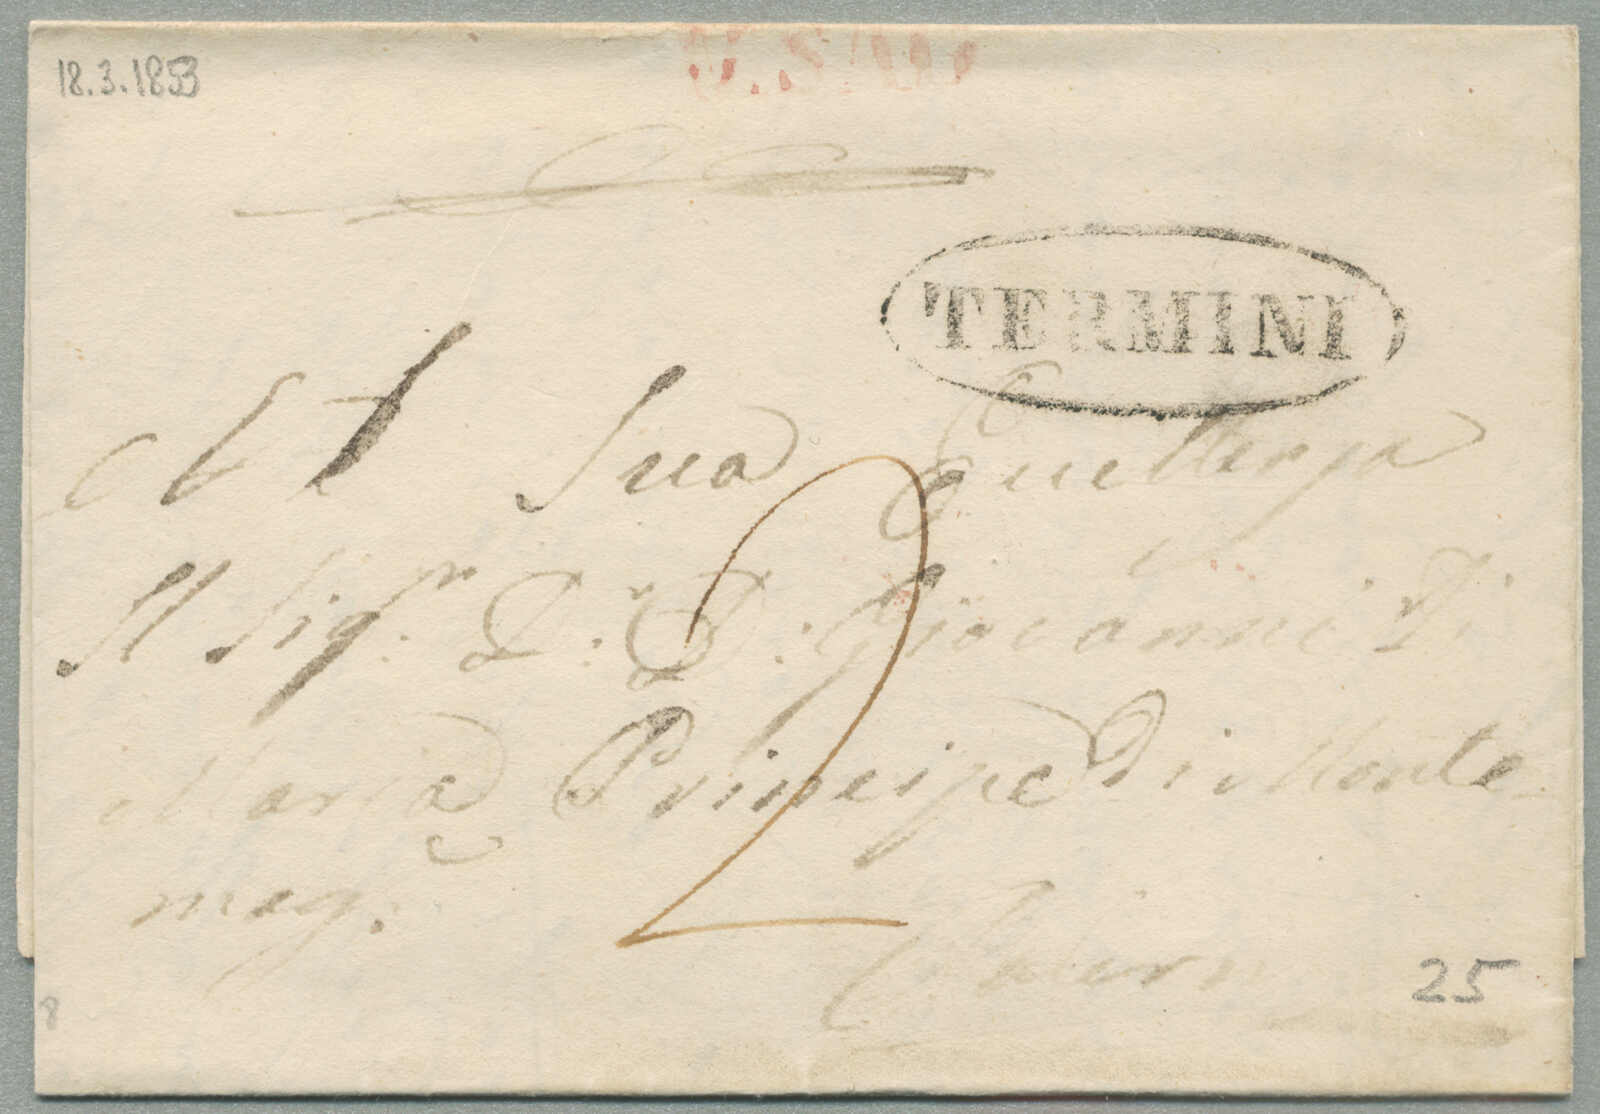 18.3.1853
TERMINI
A Sua Eccellenza
Il Sigr. Dr. D. Giovanni Di
Maria Principe di Monte
mag.
2
Palermo
25
8